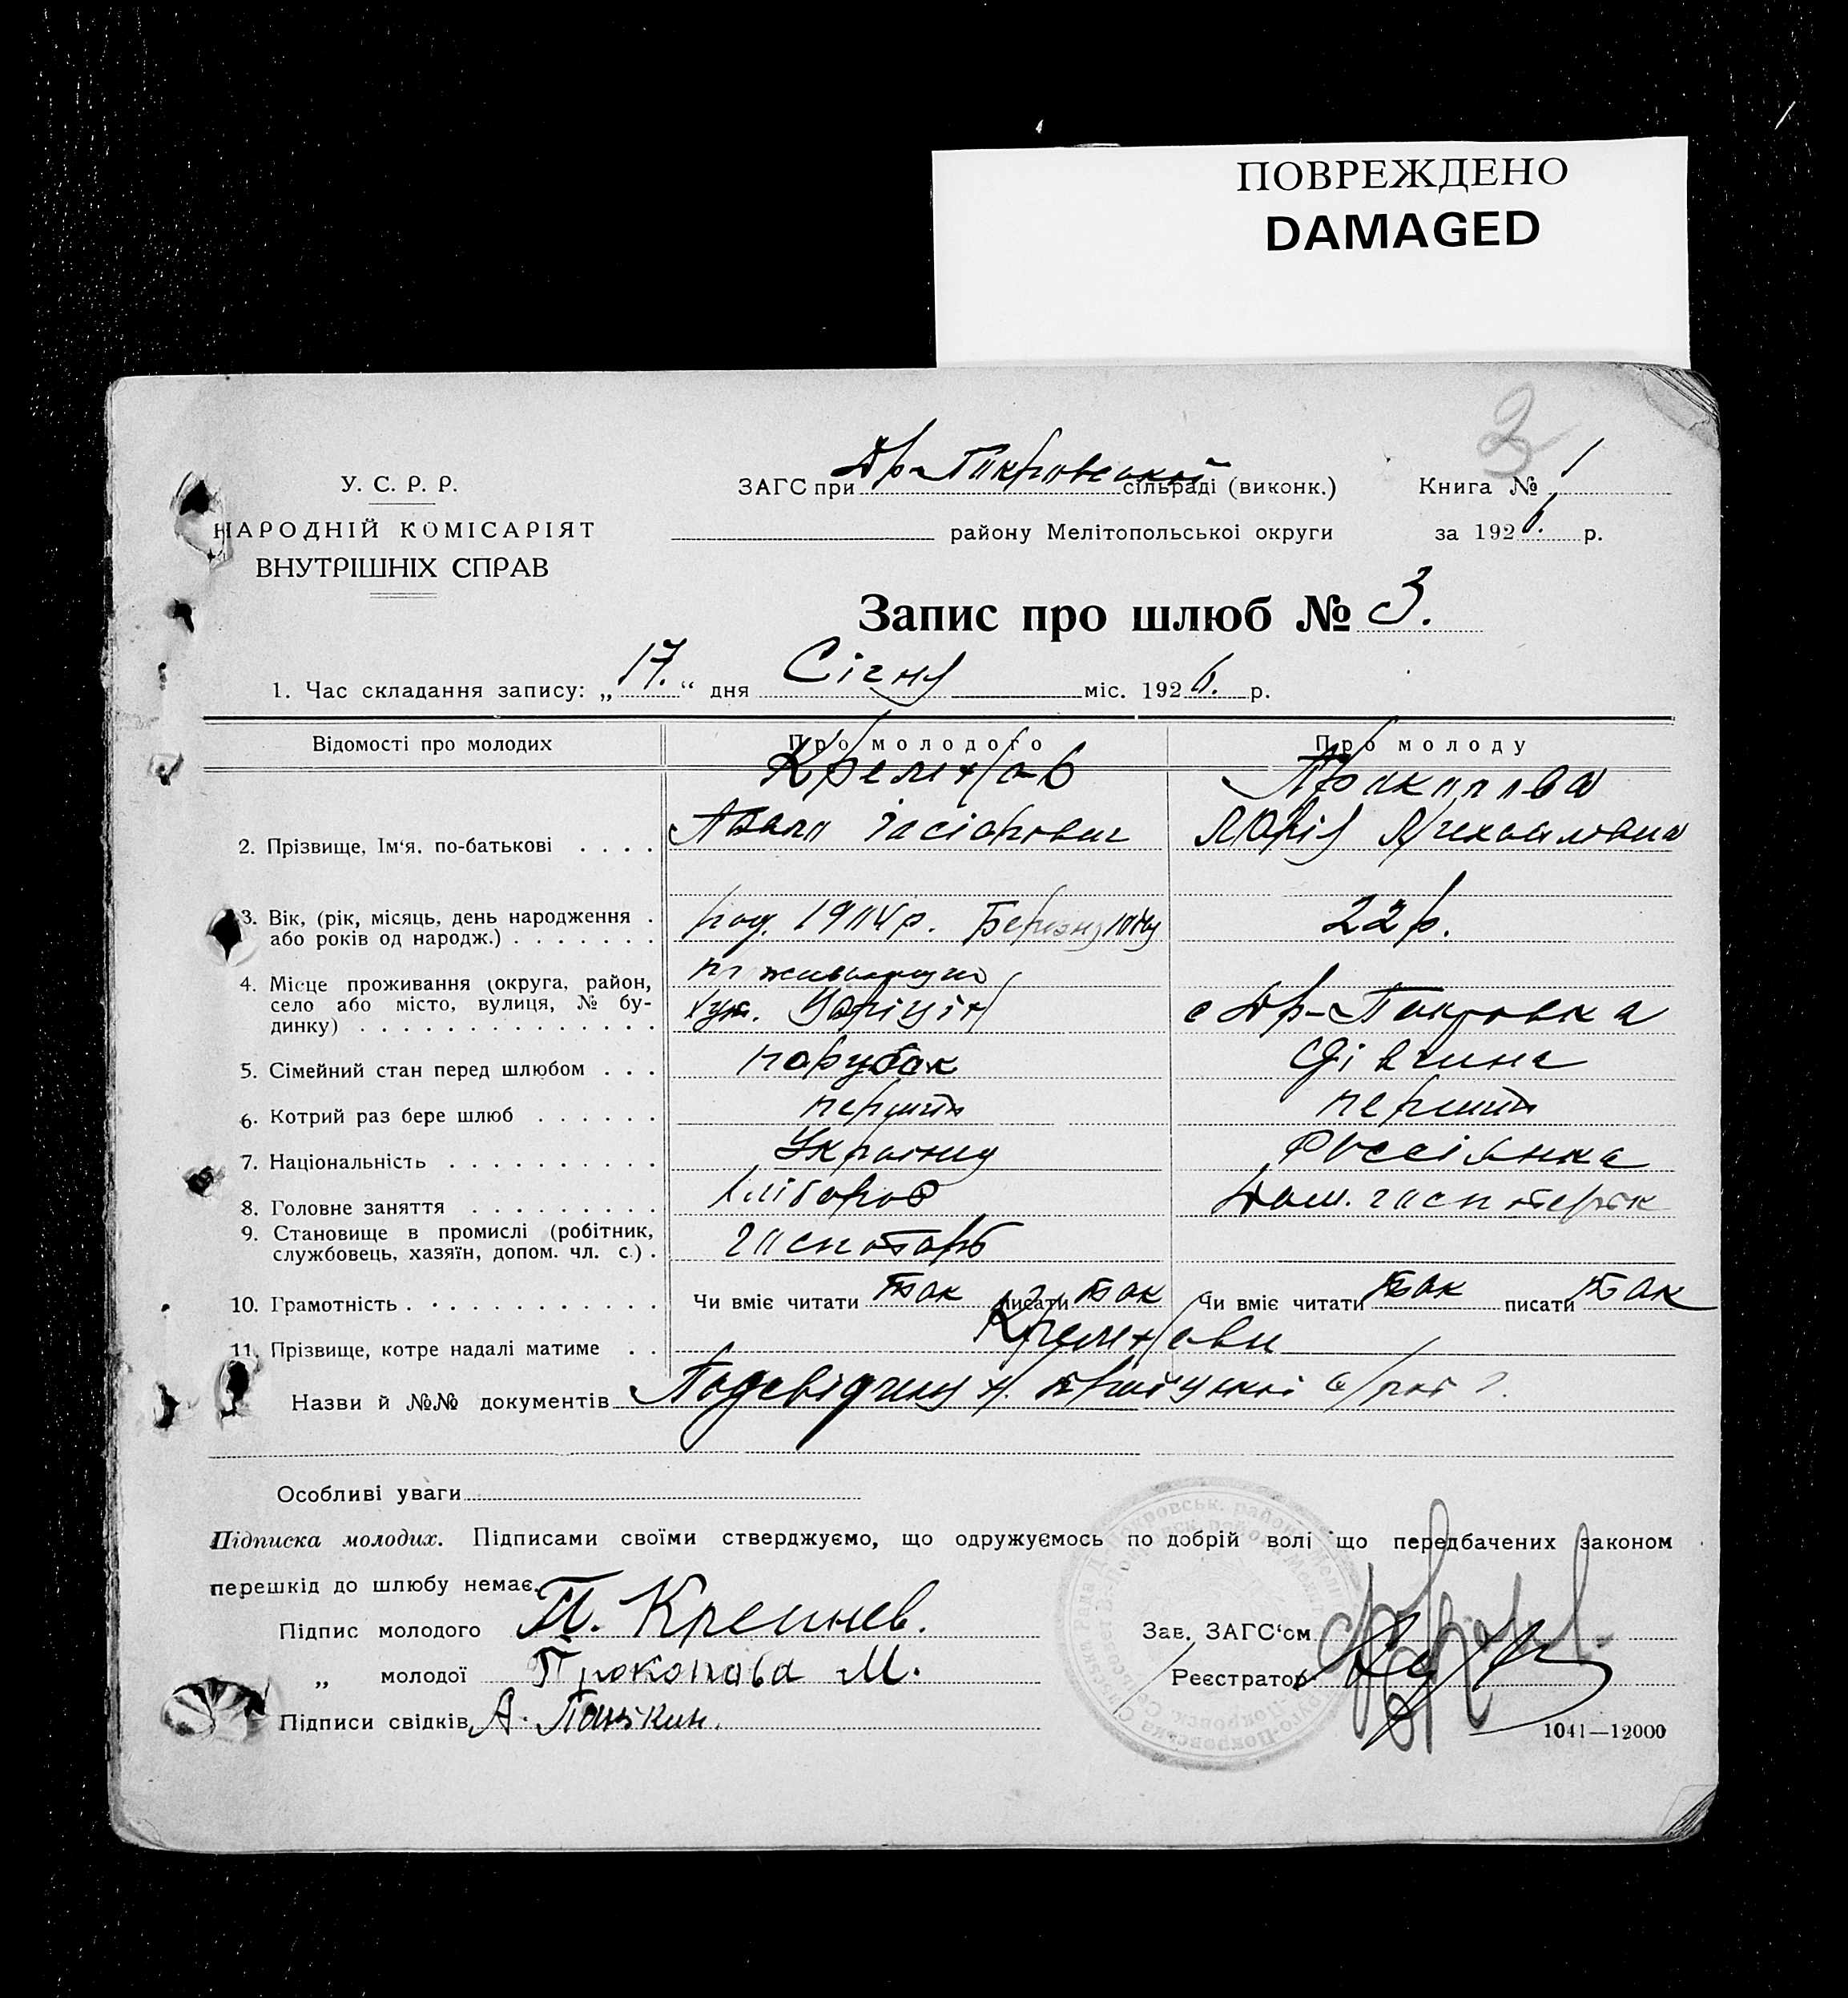 ПОВРЕЖДЕНО
DAMAGED
3
У. С. Р. Р.
НАРОДНІЙ КОМІСАРІЯТ
ВНУТРІШНІХ СПРАВ
ЗАГС при Др-Покровській сільраді (виконк.)
району Мелітопольської округи
Книга № 1
за 1926. р.
Запис про шлюб № 3.
1. Час складання запису: „17.“ дня Січня міс. 1926. р.
Відомості про молодих Про молодого Про молоду
Кремньов Прокопова
2. Прізвище, Ім'я, по-батькові . . . . Марія Михайловна
3. Вік, (рік, місяць, день народження . або років од народж.) . . . . . . . род. 1904 р. Березня 22 р.
4. Місце проживання (округа, район, село або місто, вулиця, № будинку) . . . . . . . . . . . . . . хут. с Др-Покровка
5. Сімейний стан перед шлюбом . . . парубак дівчина
6. Котрий раз бере шлюб . . . . . . перший перший
7. Національність . . . . . . . . . . Россіянка
8. Головне заняття . . . . . . . . . хлібороб дом.
9. Становище в промислі (робітник, службовець, хазяїн, допом. чл. с.) . господарь
10. Грамотність . . . . . . . . . . . . Чи вміє читати так писати так Чи вміє читати так писати так
11. Прізвище, котре надалі матиме . . Кремньови
Назви й №№ документів
Особливі уваги
Підписка молодих. Підписами своїми стверджуємо, що одружуємось по добрій волі що передбачених законом
перешкід до шлюбу немає.
Підпис молодого П. Кремнев.
„ молодої Прокопова М.
Підписи свідків А. Панкин.
Зав. ЗАГС'ом
Реєстратор
1041—12000